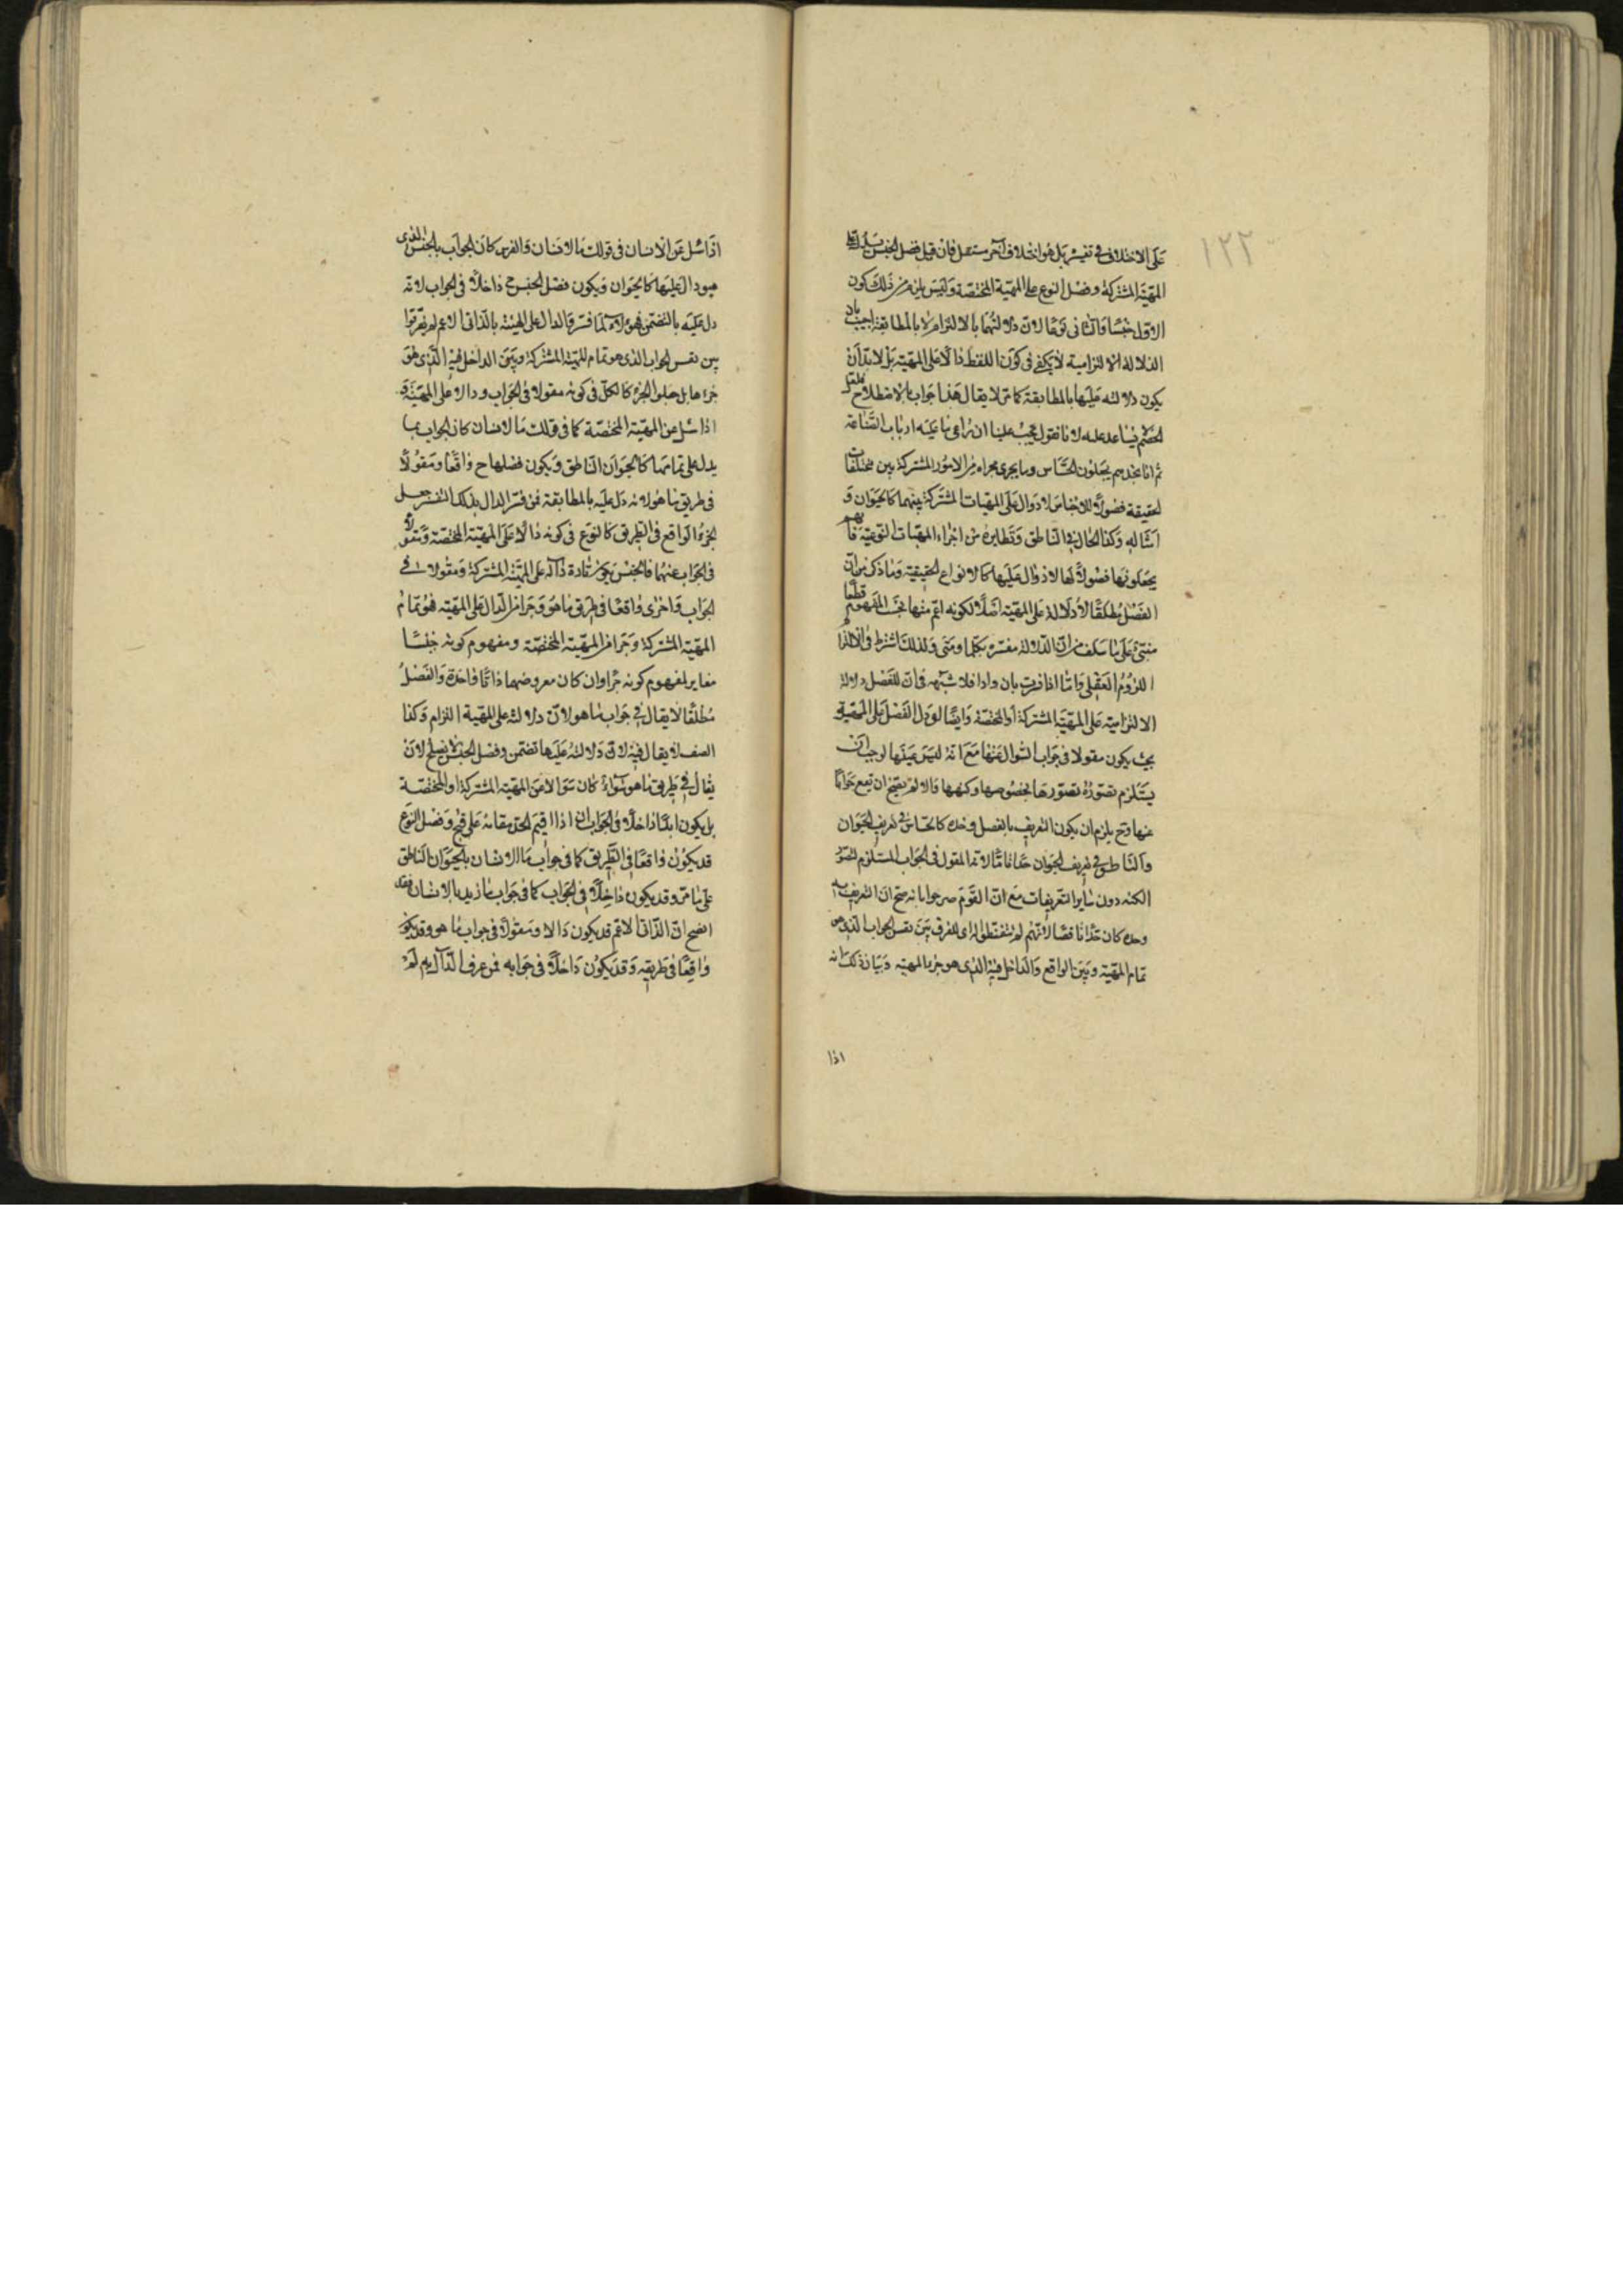 ١٢٢
على الاختلاف في تفسيره بل هو اختلاف آخر مستعمل فان قيل فصل الجنس يدل على
المهيّة المشتركة وفصل النوع على المهيّة المختصة وليس يلزم من ذلك كون
الاول جنسًا والثانى نوعًا لان دلالتهما بالالتزام لا بالمطابقة اجيب بان
الدلالة الالتزامية لا يكفى فى كون اللفظ دالا على المهيّة بل لا بد ان
يكون دلالته عليها بالمطابقة كما مر لا يقال هذا جواب بالاصطلاح فلعل
الخصم لا يساعد عليه لانا نقول يجب علينا ان نراعى ما عليه ارباب الصّناعة
ثم انا نجدهم يجعلون الحسّاس وما يجرى مجراه من الامور المشتركة بين مختلفات
الحقيقة فصولًا للاجناس لا دوال على المهيات المشتركة بينهما كالحيوان و
امثاله وكذا الحال فى الناطق ونظايره من اجزاء المهيّات النوعيّة فانهم
يجعلونها فصولًا لها لا دوال عليها كالانواع الحقيقية وما ذكر من ان
الفصل مطلقًا لا دلالة له على المهيّة اصلًا لكونه اعم منها بحسب المفهوم قطعًا
مبتنى على ما سلف من ان الدلالة مفسّرة بكلما ومتى ولذلك اشترط فى الالتزام
اللزوم العقلى واما اذا فسرت بان واذا فلا شبهة فى ان للفصل دلالة
الالتزامية على المهيّة المشتركة او المختصة وايضًا لو دل الفصل على المهيّة
بحيث يكون مقولا فى جواب السّوال عنها مع انه ليس عينها لوجب ان
يستلزم تصوّره تصوّرها بخصوصها وكنهها والا لم يصح ان يقع جوابًا
عنها وح يلزم ان يكون التعريف بالفصل وحده كالحساس فى تعريف الحيوان
والناطق فى تعريف الحيوان حدًا تامًّا لانه المقول فى الجواب المستلزم لتصوّر
الكنه دون ساير التعريفات مع ان القوم صرحوا بانه صح ان التعريف به
وحده كان حدًّا ناقصًا لانهم لم يتفطنوا اى للفرق بين نفس الجواب الذى هو
تمام المهيّة وبين الواقع والداخل فيه الذى هو جزء المهيّة وبيان ذلك انه
اذا
اذا سُئل عن الانسان فى قولك ما الانسان والفرس كان الجواب بالجنس الذى
هو دال عليها كالحيوان ويكون فصل الجنس ح داخلًا فى الجواب لانه
دل عليه بالتضمن فهؤلاء لما فسروا الدال على المهيّة بالذاتى الاعم لم يفرقوا
بين نفس الجواب الذى هو تمام المهيّة المشتركة وبين الداخل فيه الّذى هو
جزءها بل جعلوا الجزء كالكل فى كونه مقولا فى الجواب ودالا على المهيّة و
اذا سئل عن المهيّة المختصّة كما فى قولك ما الانسان كان الجواب بما
يدل على تمامها كالحيوان الناطق ويكون فصلها ح واقعًا ومقولًا
فى طريق ما هو لانه دل عليه بالمطابقة فمن فسّر الدال بذلك التفسير جعل
الجزء الواقع فى الطريق كالنوع فى كونه دالًا على المهيّة المختصّة ومقولًا
فى الجواب عنهما فالجنس يكون تارة دالة على المهيّة المشتركة ومقولا فى
الجواب واخرى واقعًا فى طريق ما هو وجزا من الدال على المهيّة فهو تمام
المهيّة المشتركة وجزا من المهيّة المختصّة ومفهوم كونه جنسًا
مغاير لمفهوم كونه جزًا وان كان معروضهما ذاتًا واحدة والفصل
مطلقًا لا يقال فى جواب ما هو لان دلالته على المهيّة التزام وكذا
الصنف لا يقال فيه لان دلالته عليها تضمن وفصل الجنس لا يصلح لان
يقال فى طريق ما هو سواء كان سوالا عن المهيّة المشتركة او المختصّة
بل يكون ابدًا داخلًا فى الجواب ان اذا اقيم الحد مقامه على قبح وفصل النوع
قد يكون واقعًا فى الطريق كما فى جواب ما الانسان بالحيوان الناطق
على ما مر وقد يكون داخلًا فى الجواب كما فى جواب ما زيد بالانسان فقد
اتضح ان الذاتى الاعم قد يكون دالا ومقولًا فى جواب ما هو وقد يكون
واقعًا فى طريقه وقد يكون داخلًا فى جوابه فمن عرف الدّال به لم